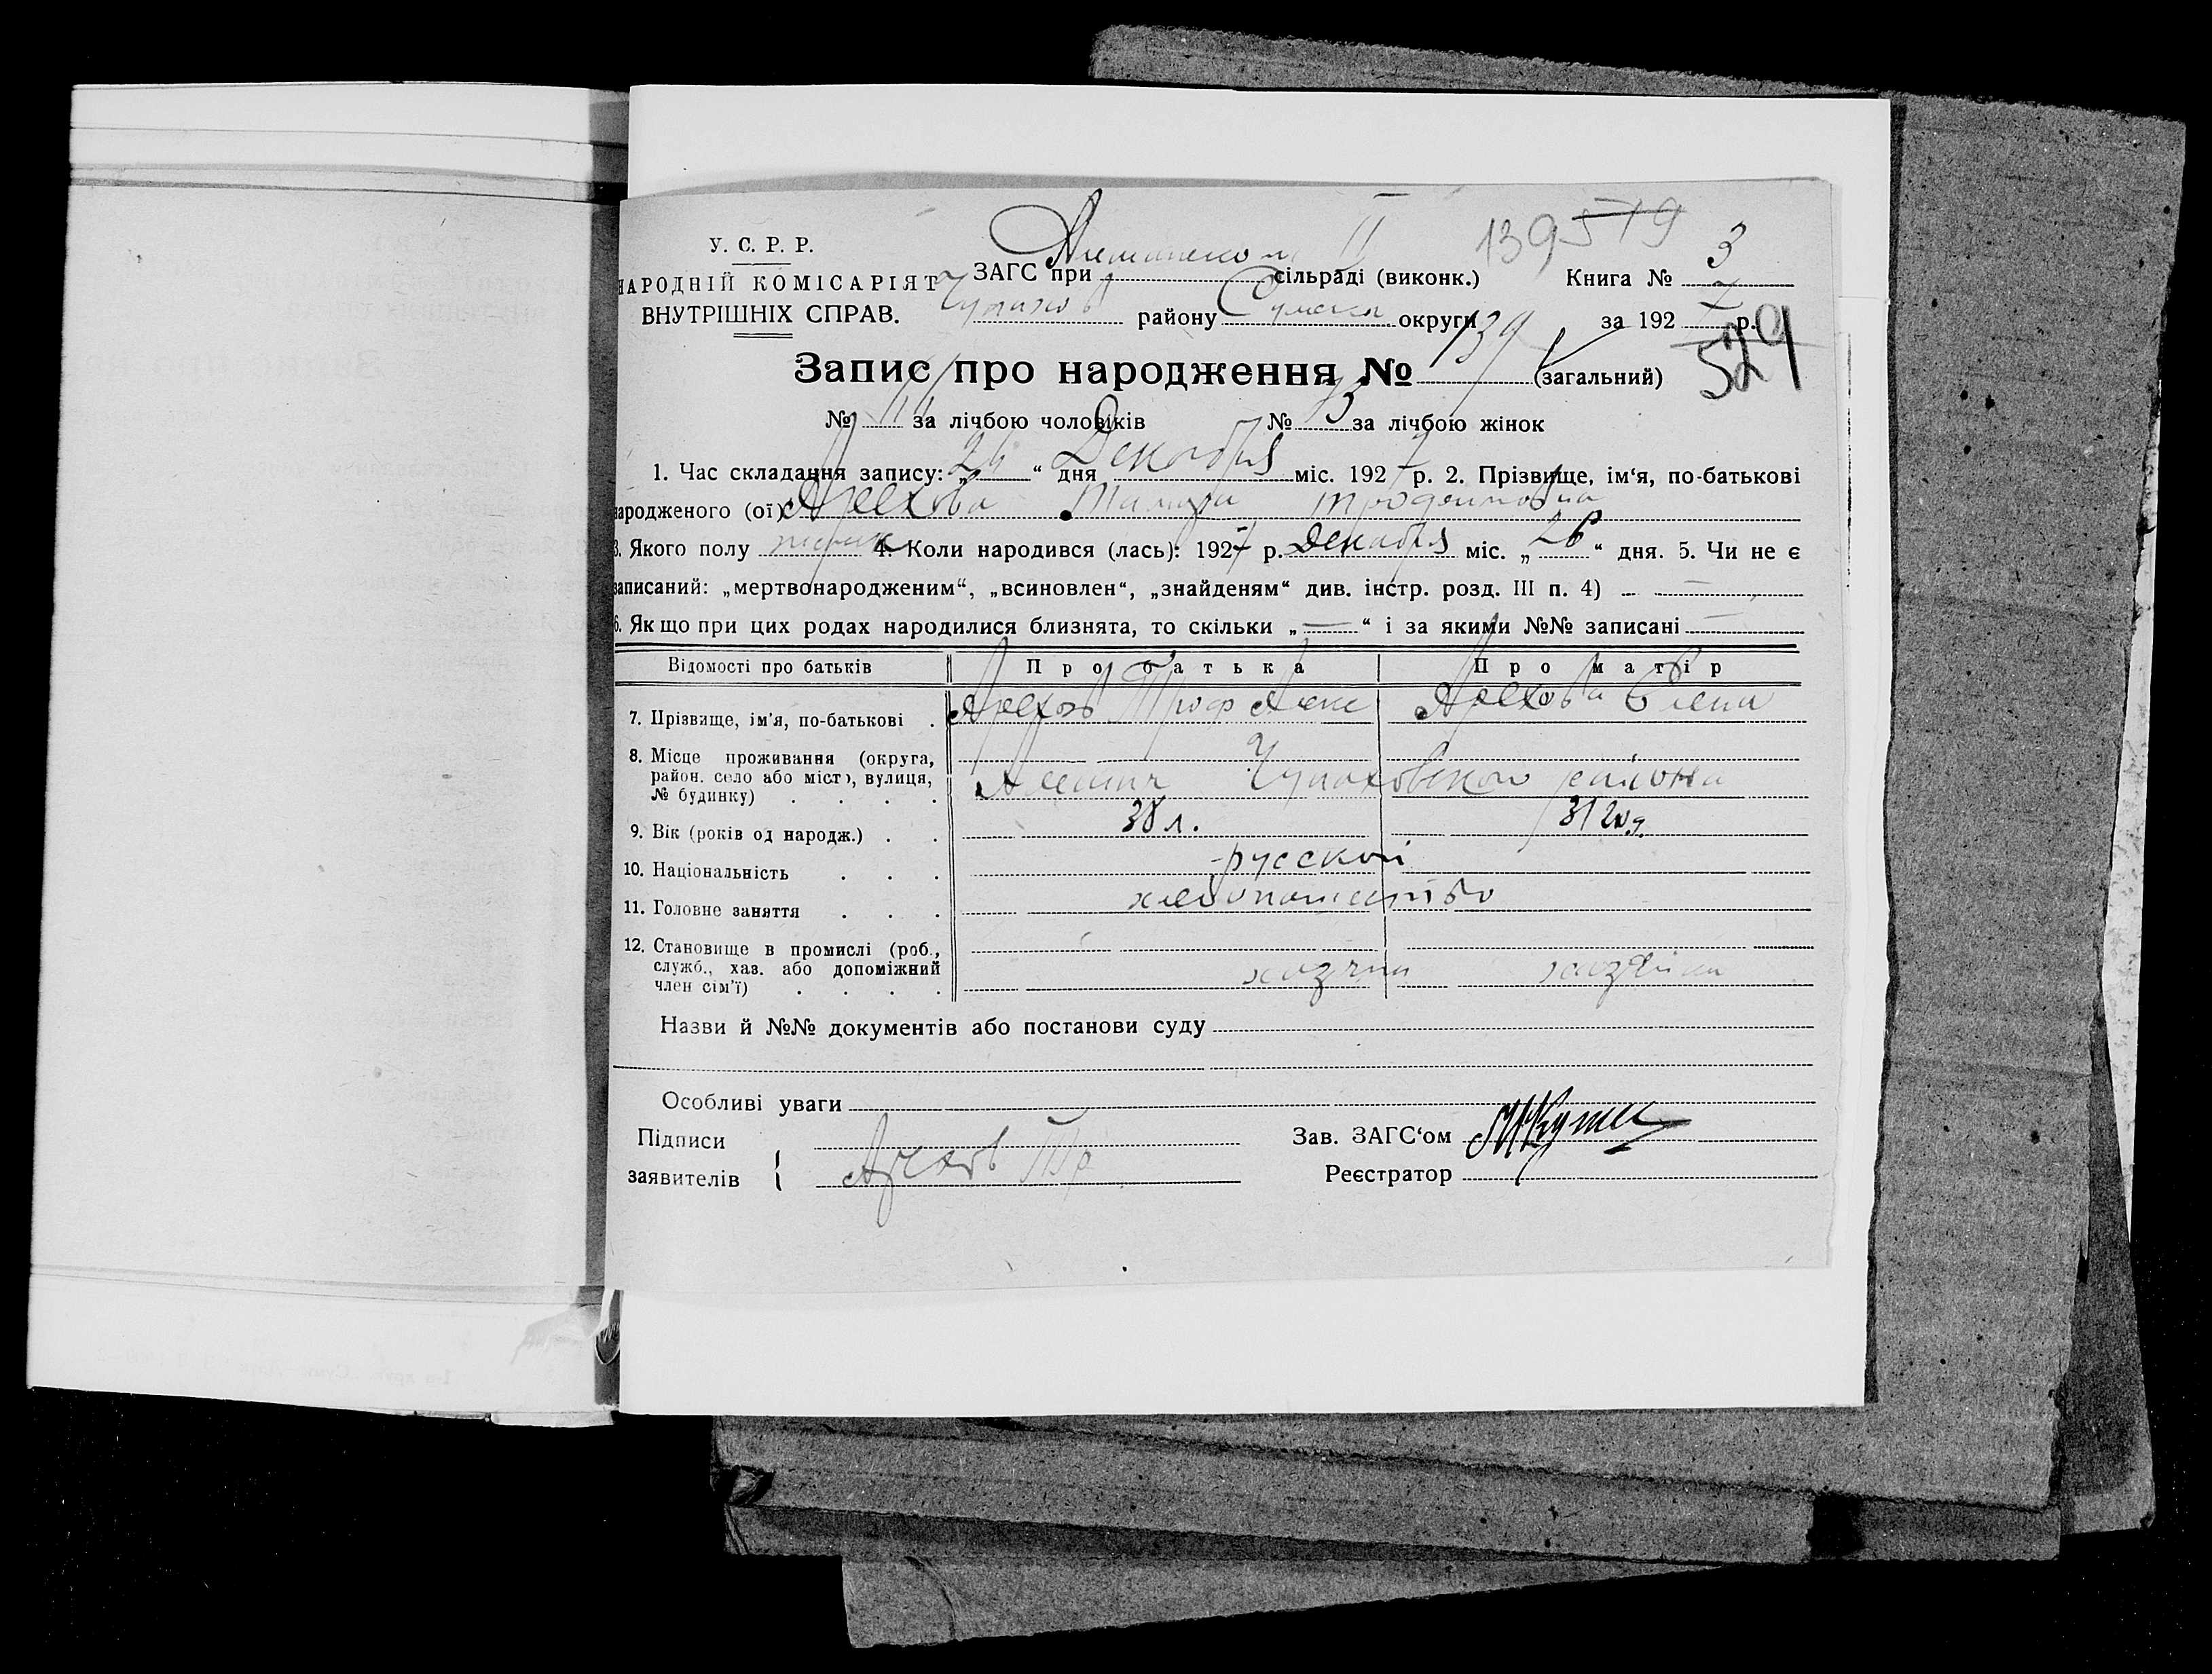 139 579
У. С. Р. Р.
НАРОДНІЙ КОМІСАРІЯТ
ВНУТРІШНІХ СПРАВ.
ЗАГС при II сільраді (виконк.) Книга № 3
району Сумска округи за 1927 р.
529
Запис про народження № 139 (загальний)
№ за лічбою чоловіків № за лічбою жінок
1. Час складання запису: „ “ дня Декабря міс. 1927 р. 2. Прізвище, ім‘я, по-батькові
народженого (ої) Арехова Тамара
3. Якого полу 4. Коли народився (лась): 1927 р. Декабря міс. „ 26 “ дня. 5. Чи не є
записаний: „мертвонародженим“, „всиновлен“, „знайденям“ див. інстр. розд. III п. 4) —
6. Якщо при цих родах народилися близнята, то скільки „ — “ і за якими №№ записані —
Відомості про батьків Про батька Про матір
7. Прізвище, ім'я, по-батькові . Арехов Троф Алек Арехова Елена
8. Місце проживання (округа,
район. село або місто, вулиця,
№ будинку) . . . . Чупаховского района
9. Вік (років од народж.) . . 38 л. 31 год.
10. Національність . . . русской
11. Головне заняття . . . хлебопашество
12. Становище в промислі (роб.,
служб., хаз. або допоміжний
член сім'ї) . . . . хозяин хозяйка
Назви й №№ документів або постанови суду
Особливі уваги
Підписи
заявителів Арехов Тр
Зав. ЗАГС‘ом
Реєстратор